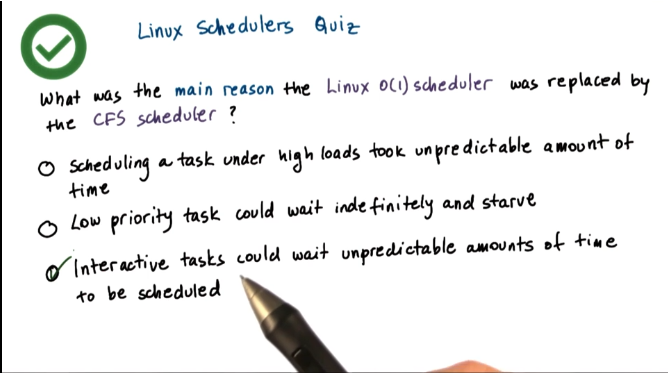 Linux Schedulers Quiz
What was the main reason the Linux O(1) scheduler was replaced by
the CFS scheduler ?
Scheduling a task under high loads took unpredictable amount of
time
Low priority task could wait indefinitely and starve
Interactive tasks could wait unpredictable amounts of time
to be scheduled